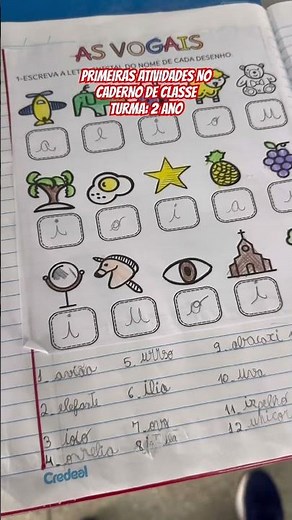 AS VOGAIS
1-ESCREVA A INICIAL DO NOME DE CADA DESENHO.
PRIMEIRAS ATIVIDADES NO
CADERNO DE CLASSE
TURMA: 2 ANO
a e i o u
i o i a
i u o i
1. avião 5. 9. abacaxi
2. elefante 6. ilia 10. uva
3 ioiô 7. ovo 11 espelho
4. ovelha 8. 12 unicor
Credeal